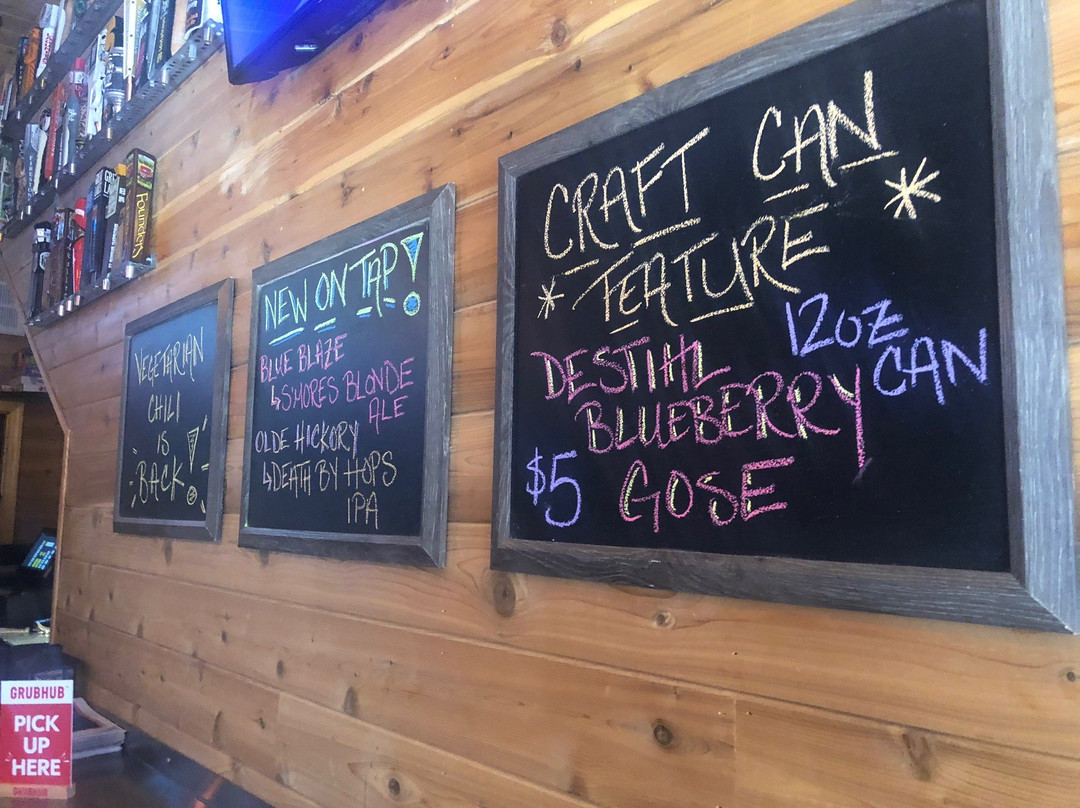 Founders
VEGETARIAN
CHILI
IS
BACK!
NEW ON TAP!
BLUE BLAZE
↳S'MORES BLONDE
ALE
OLDE HICKORY
↳DEATH BY HOPS
IPA
CRAFT CAN
*FEATURE*
DESTIHL 12OZ
BLUEBERRY CAN
$5 GOSE
GRUBHUB
PICK
UP
HERE
GRUBHUB